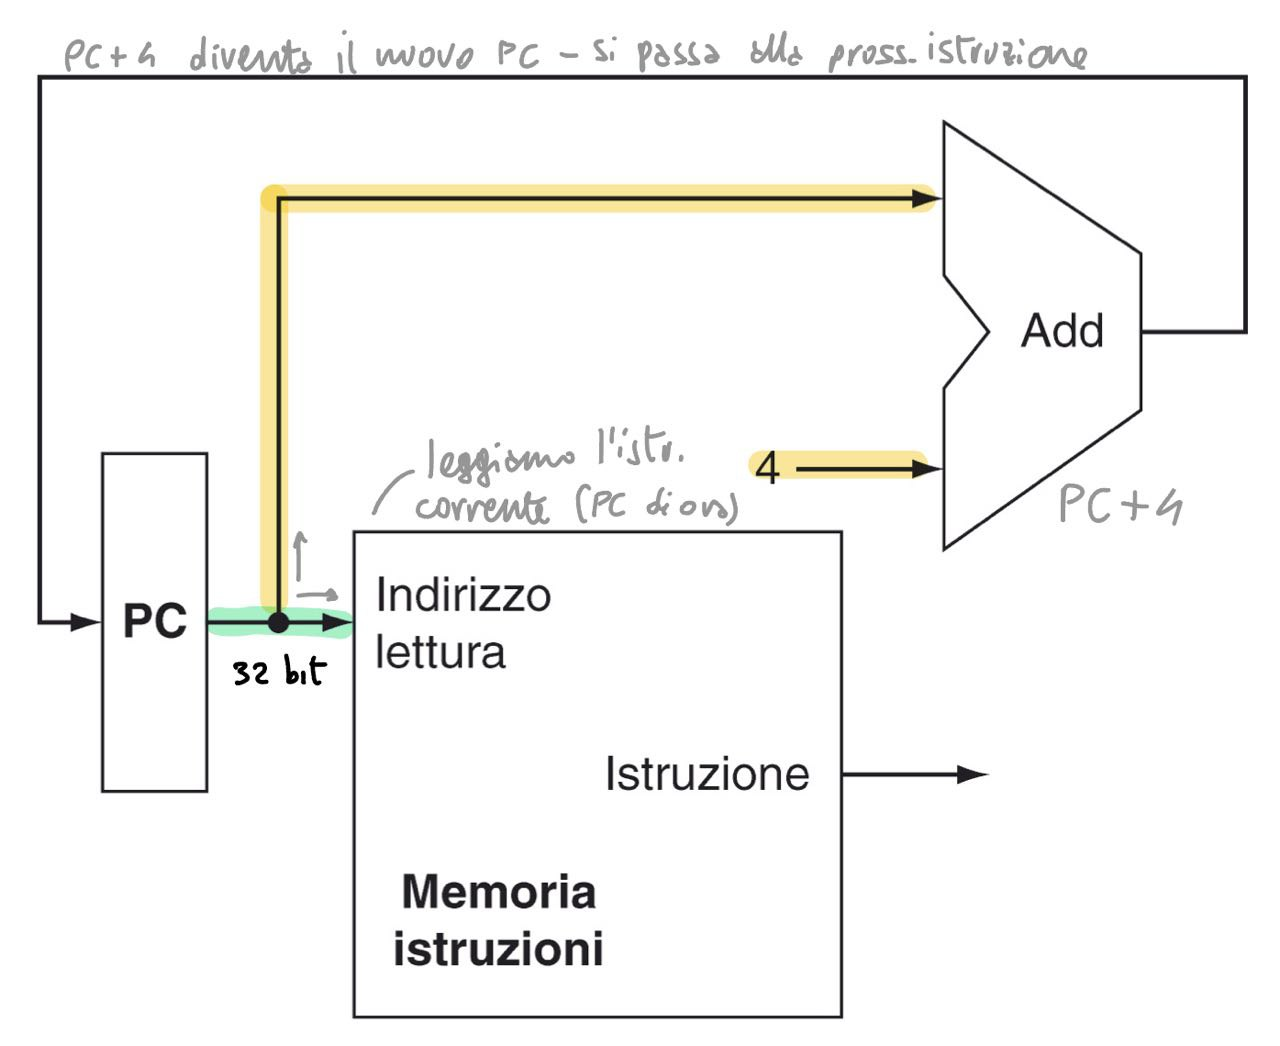 PC+4 diventa il nuovo PC - si passa alla pross. istruzione
Add
leggiamo l'istr.
corrente (PC di ora)
4
PC+4
PC
32 bit
Indirizzo
lettura
Istruzione
Memoria
istruzioni